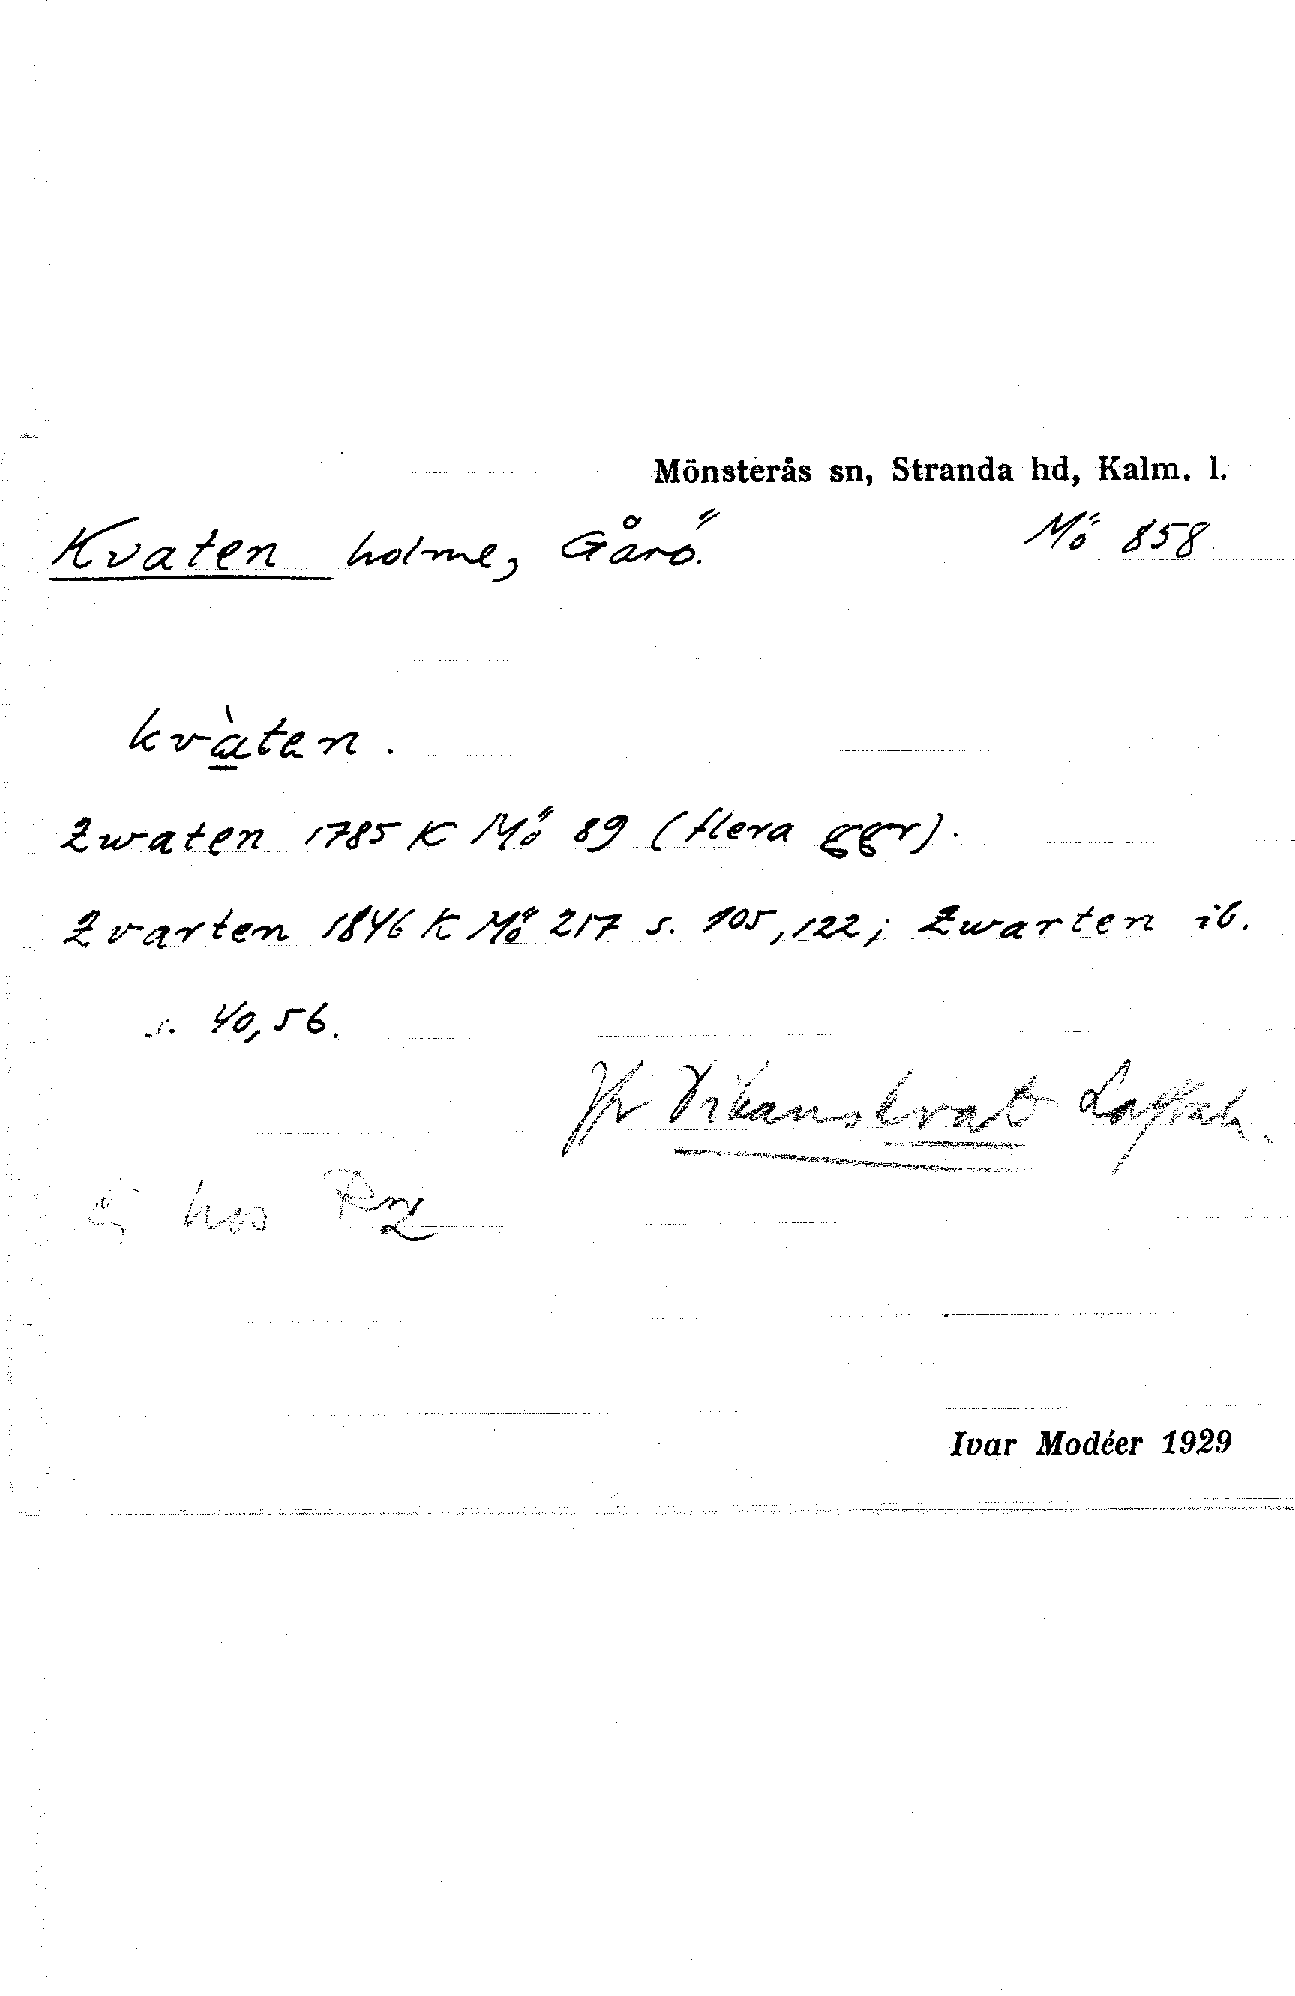 Mönsterås sn, Stranda hd, Kalm. l.
Kvaten holme, Gårö. Mö 858
kvàten.
Qwaten 1785 K Mö 89 (flera ggr).
Qvarten 1846 K Mö 217 s. 105, 122; Qwarten ib.
s. 40, 56.
Jfr
Ej hos
Ivar Modéer 1929